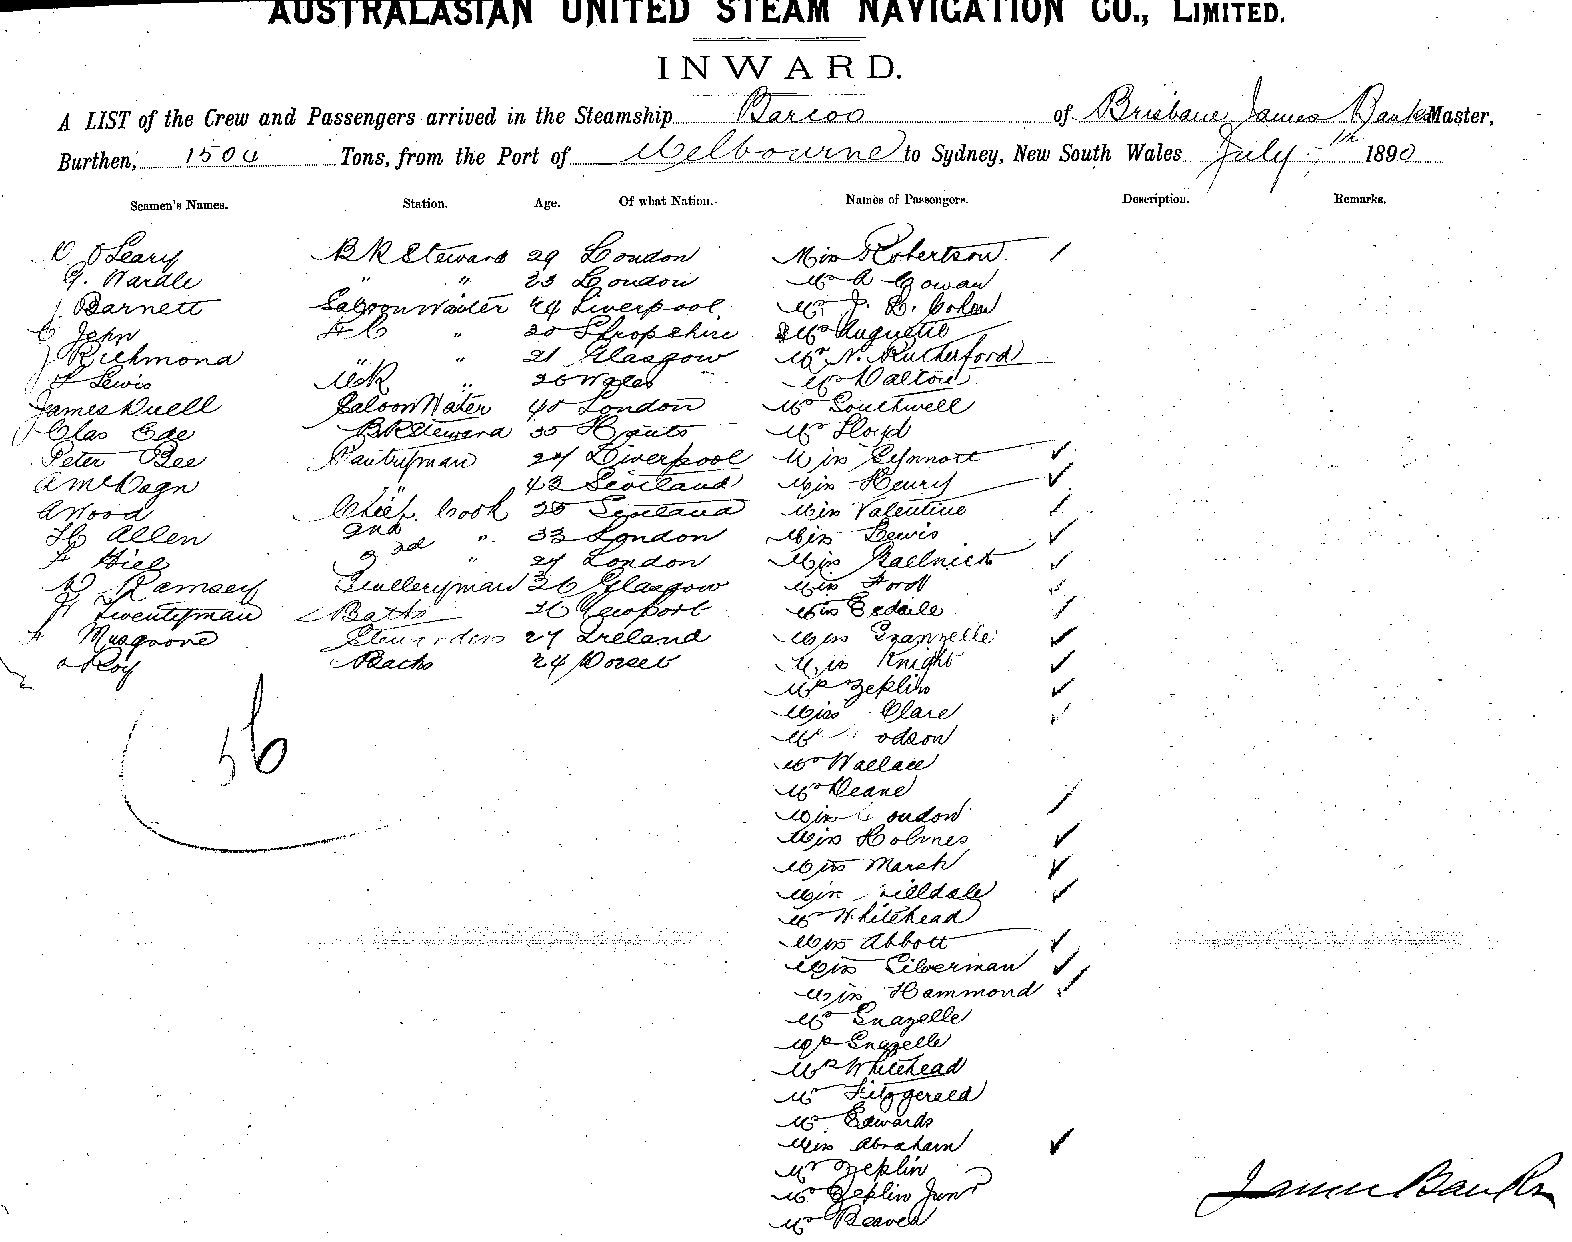 AUSTRALASIAN UNITED STEAM NAVIGATION CO., LIMITED.
INWARD.
A LIST of the Crew and Passengers arrived in the Steamship Barcoo of Brisbane, James Banks Master,
Burthen, 1504 Tons, from the Port of Melbourne to Sydney, New South Wales July th 1890
Seamen's Names. Station. Age. Of what Nation. Names of Passengers. Description. Remarks.
O'Leary BK Steward 29 London Miss Robertson
G. Wardle " " 23 London Mr A Cowan
J. Barnett Saloon Waiter 24 Liverpool Mr J. B. Cohen
C John FC " 20 Shropshire Mr Auguette
J Richmond " " 21 Glasgow Mr N. Rutherford
Lewis " 26 Wales Mr Dalton
James Duell Saloon Waiter 40 London Mr Southwell
Chas Ede BK Steward 35 Hants Mr Lloyd
Peter Bee Pantryman 24 Liverpool Miss
A " 42 Scotland Miss Henry
A Wood Chief Cook 28 Miss Valentine
H Allen 2nd " 33 London Miss Lewis
F Hill 3rd " 24 London Miss
W Ramsey Sculleryman 36 Glasgow Miss Ford
H Twentyman Baths 26 Newport Miss
Musgrove Stewardess 27 Ireland Miss Granzelle
Roy Baths 24 Dorset Miss Knight
Mrs Zeplin
56
Miss Clare
Mr odson
Mr Wallace
Mr Deane
Miss oudon
Miss Holmes
Miss Marsh
Miss illdale
Mr Whitehead
Miss Abbott
Miss Silverman
Miss Hammond
Mr Snazelle
Mrs Snazelle
Mrs Whitehead
Mr Fitzgerald
Mr Edwards
Miss Abraham
Mr Zeplin
Mr Zeplin Junr
Mr Beaver
James Banks